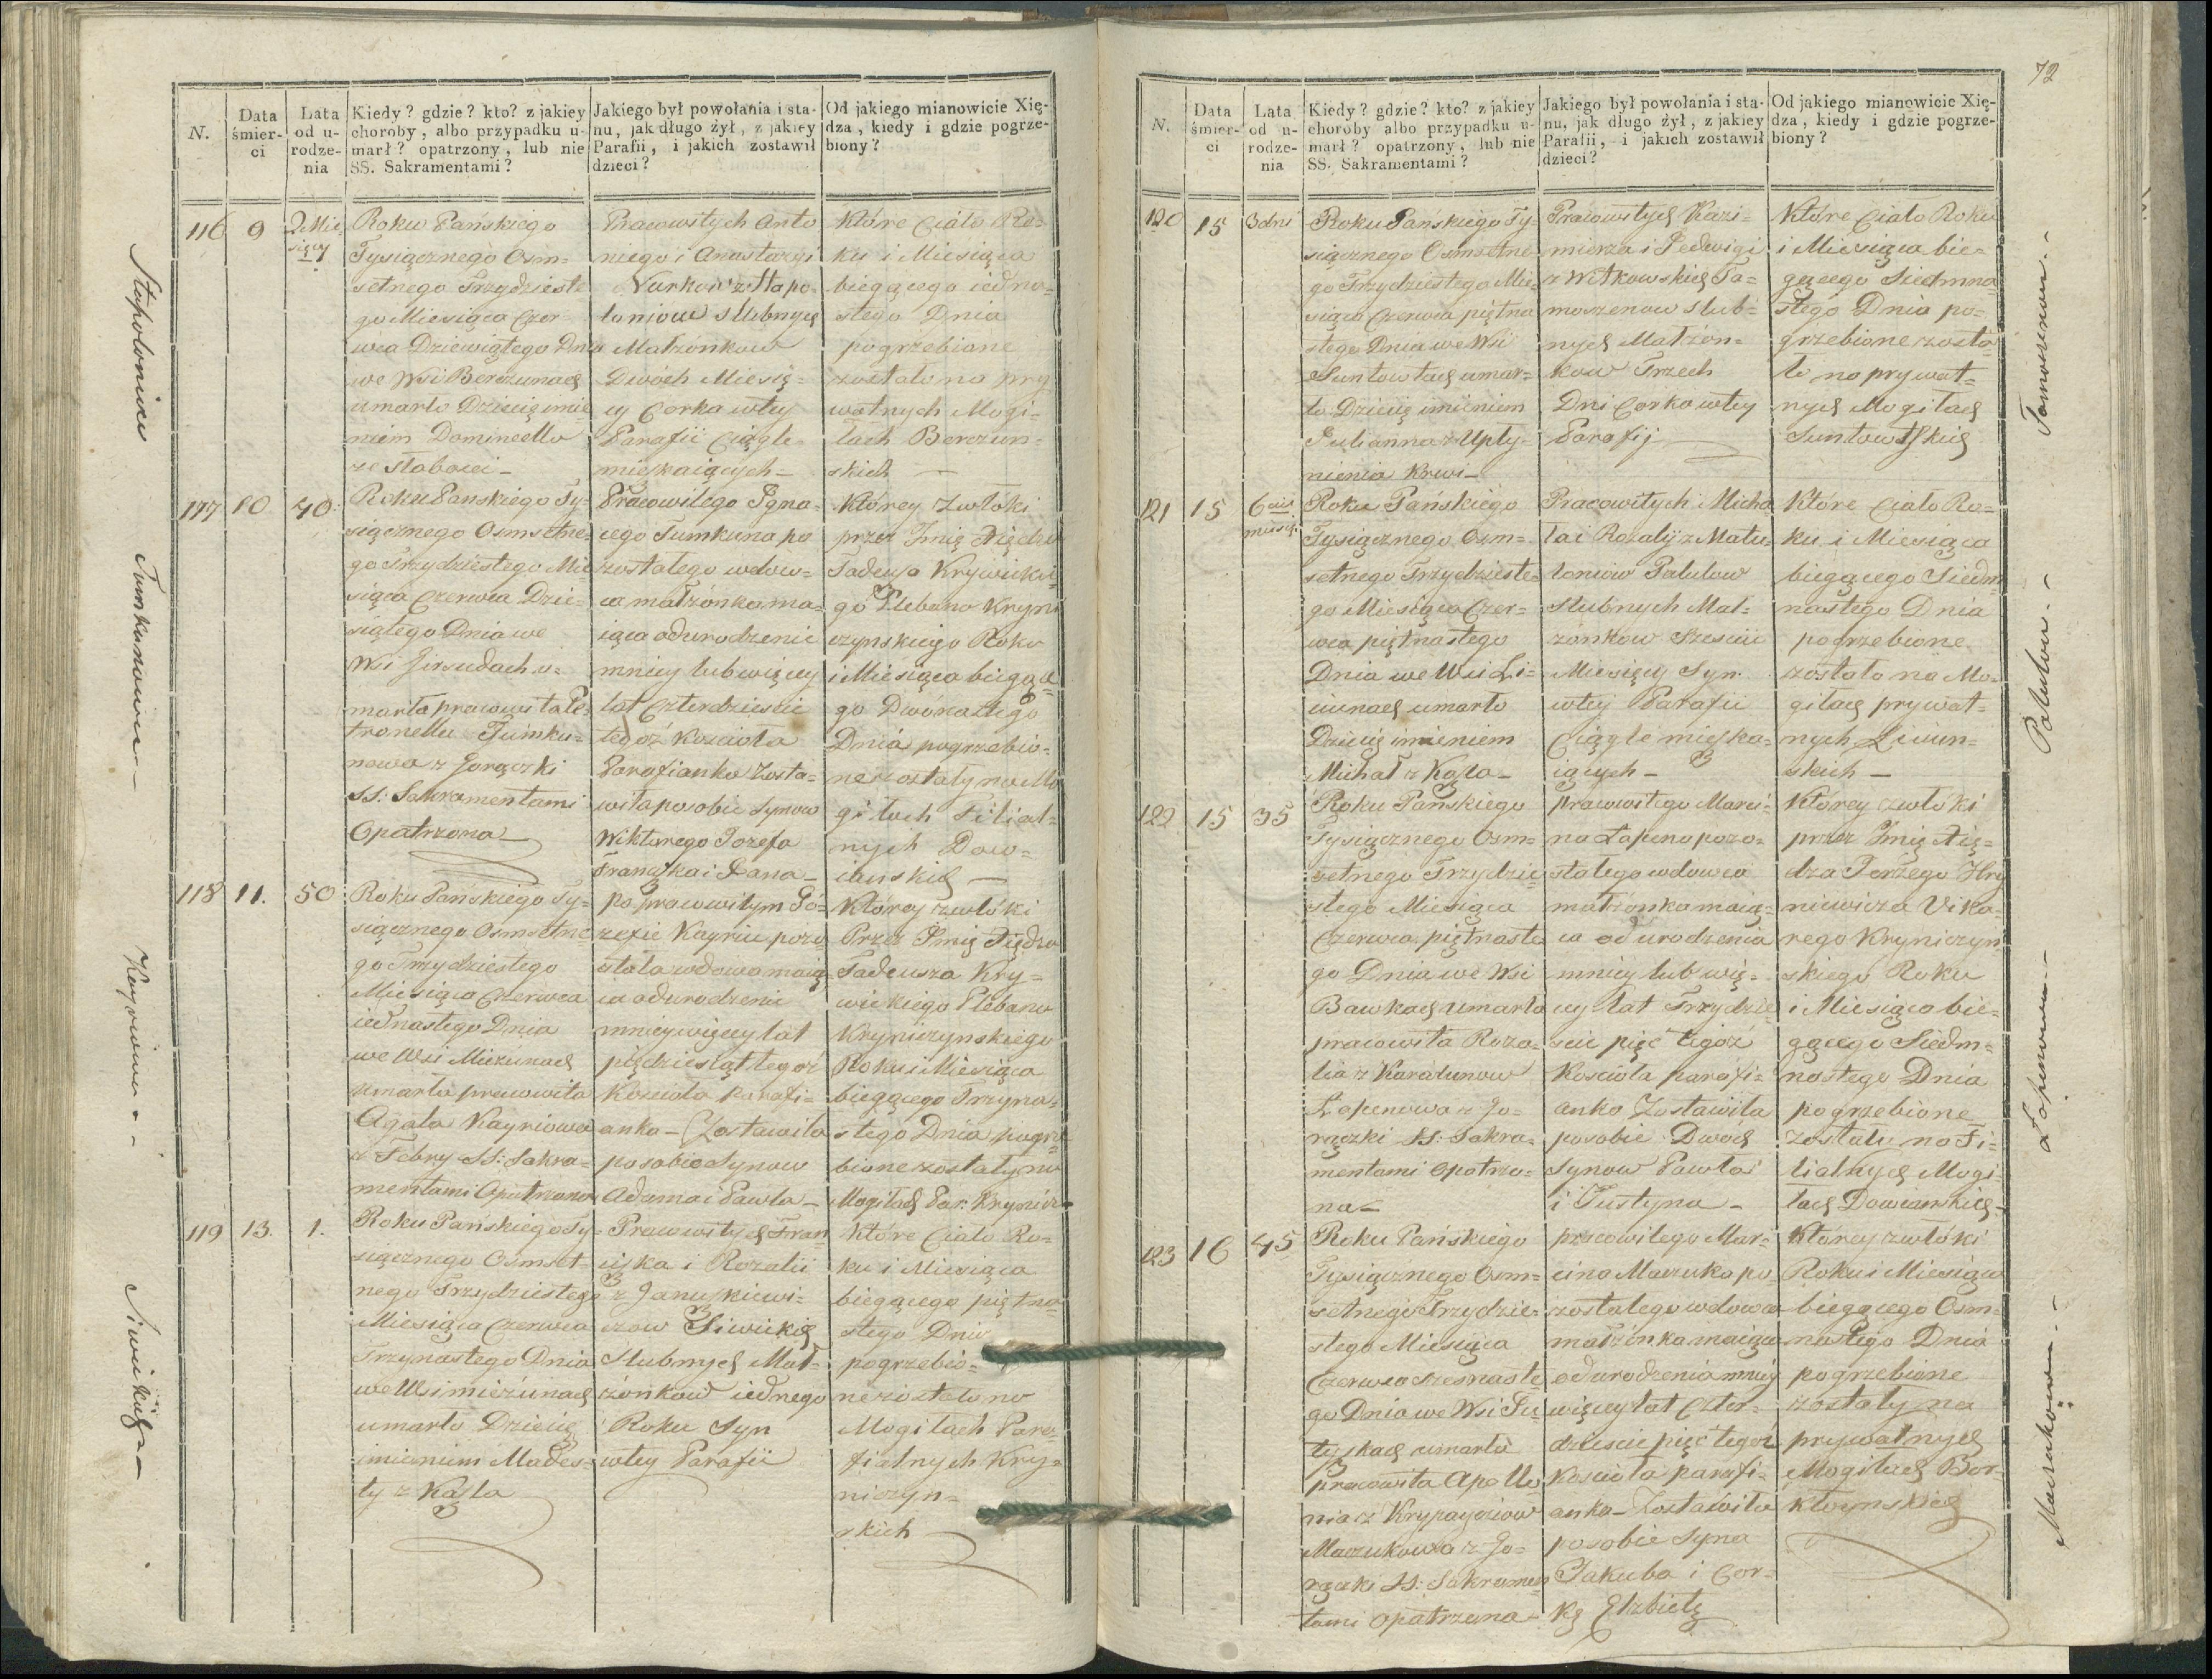 72
N.
Data śmier-
ci
Lata
od u-
rodze-
nia
Kiedy? gdzie? kto? z jakiey
choroby, albo przypadku u-
marł? opatrzony, lub nie
SS. Sakramentami?
Jakiego był powołania i sta-
nu, jak długo żył, z jakiey
Parafii, i jakich zostawił
dzieci?
Od jakiego mianowicie Xię-
dza, kiedy i gdzie pogrze-
biony?
116
9
2 Mie
sięcy
Roku Pańskiego
Tysiącznego Osm-
setnego Trzydzieste
go Miesiąca Czer-
wca Dziewiątego Dnia
we Wsi Berczunach
umarło Dziecię imie
niem
ze słabości
Pracowitych Anto
niego i Anastazyi
łoniow Slubnych
Małżonkow
Dwóch Miesię-
cy Corka wtey
Parafii Ciągle
mieszkaiących
Które Ciało Ro-
ku i Miesiąca
biegącego iedna-
stego Dnia
pogrzebione
zostało na pry
watnych Mogi-
łach Berczun-
skich
117
10
40
Roku Pańskiego Ty-
siącznego Osmsetne
go Trzydziestego Mie
siąca Czerwca Dzie-
siątego Dnia we
Wsi Girsudach u-
marła pracowita Pe
tronella Tumku-
nowa z Gorączki
SS: Sakramentami
Opatrzona
Pracowitego Igna-
cego Tumkuna po
zostałego wdow-
ca małżonka ma-
iąca od urodzenia
mniey lub więcey
lat Czterdzieście
tegoż Kościoła
Parafianka Zosta-
wiła posobie Synow
Wiktorego Jozefa
Franciszka i Jana
Którey Zwłóki
przez Jmię Xiędza
Tadeusza Krywickie
go Plebana Kryni
czynskiego Roku
i Miesiąca biegące
go Dwónastego
Dnia pogrzebio-
ne zostały na Mo
giłach Filial-
nych Dow-
ianskich
118
11.
50
Roku Pańskiego Ty-
siącznego Osmsetne
go Trzydziestego
Miesiąca Czerwca
iednastego Dnia
we Wsi Mieżunach
umarła pracowita
Agata Kayriowa
z Febry SS: Sakra-
mentami Opatrzona
po pracowitym Jó-
zefie Kayriu pozo
stała wdowa maią
ca od urodzenia
mniey więcey lat
pięćdziesiąt tegoż
Kościoła Parafi-
anka - Zostawiła
posobie Synow
Adama i Pawła
Którey zwłóki
Przez Jmię Xiędza
Tadeusza Kry-
wickiego Plebana
Kryniczynskiego
Roku i Miesiąca
biegącego Trzyna-
stego Dnia pogrze
bione zostały na
Mogiłach Par: Krynicz
119
13.
1.
Roku Pańskiego Ty-
siącznego Osmset-
nego Trzydziestego
Miesiąca Czerwca
Trzynastego Dnia
we Wsi mieżunach
umarło Dziecię
imieniem Modes-
ty z Kaszla
Pracowitych Fran
ciszka i Rozalii
z Januszkiewi-
czow Siwickich
Slubnych Mał-
żonkow iednego
Roku Syn
wtey Parafii
Które Ciało Ro-
ku i Miesiąca
biegącego piętna-
stego Dnia
pogrzebio-
ne zostało na
Mogiłach Para-
fialnych Kry-
niczyn-
skich
Tumkunowa
Kayriowa
Siwickich
N.
Data
śmier-
ci
Lata
od u-
rodze-
nia
Kiedy? gdzie? kto? z jakiey
choroby albo przypadku u-
marł? opatrzony, lub nie
SS. Sakramentami?
Jakiego był powołania i sta-
nu, jak długo żył, z jakiey
Parafii, i jakich zostawił
dzieci?
Od jakiego mianowicie Xię-
dza, kiedy i gdzie pogrze-
biony?
120
15
3 dni
Roku Pańskiego Ty-
siącznego Osmsetne
go Trzydziestego Mie-
siąca Czerwca piętna
stego Dnia we Wsi
Suntowtach umar-
ło Dziecię imieniem
Julianna z Upły-
nienia Krwi
Pracowitych Kazi-
mierza i Jedwigi
z Witkowskich To-
moszenow Slub-
nych Małżon-
kow Trzech
Dni Corka wtey
Parafij
Które Ciało Roku
i Miesiąca bie-
gącego Siedmna
stego Dnia po-
grzebione zosta-
ło na prywat-
nych Mogiłach
Suntowtskich
121
15
6
miesię.
Roku Pańskiego
Tysiącznego Osm-
setnego Trzydzieste-
go Miesiąca Czer-
wca piętnastego
Dnia we Wsi Li-
iunach umarło
Dziecię imieniem
Michał z Kaszla
Pracowitych Micha
ła i Rozalij z Matu-
loniow Palulow
Slubnych Mał-
żonkow Sześciu
Miesięcy Syn
wtey Parafii
Ciągle mieszka-
iących
Które Ciało Ro-
ku i Miesiąca
biegącego Siedm
nastego Dnia
pogrzebione
zostało na Mo-
giłach prywat-
nych Liiun-
skich
122
15
35
Roku Pańskiego
Tysiącznego Osm-
setnego Trzydzie
stego Miesiąca
Czerwca piętnaste
go Dnia we Wsi
Bawkach umarła
pracowita Roza-
lia z Karalunow
Łapenowa z Go-
rączki SS: Sakra-
mentami Opatrzo-
na
pracowitego Marci-
na Łapena pozo-
stałego wdowca
małżonka maią-
ca od urodzenia
mniey lub wię-
cey lat Trzydzie
ście pięć tegoż
Kościoła parafi-
anka Zostawiła
posobie Dwóch
Synow Pawła
i Justyna
Którey zwłóki
przez Jmię Xię-
dza Jerzego Hry
niewicza Vika-
rego Kryniczyn
skiego Roku
i Miesiąca bie-
gącego Siedm-
nastego Dnia
pogrzebione
zostały na Fi-
lialnych Mogi-
łach Dowianskich
123
16
45
Roku Pańskiego
Tysiącznego Osm-
setnego Trzydzie-
stego Miesiąca
Czerwca szesnaste
go Dnia we Wsi Pu-
tyszkach umarła
pracowita Apollo
nia z
Maczukowa z Go-
rączki SS: Sakramen
tami opatrzona
pracowitego Mar-
cina Maczuka po-
zostałego wdowca
małżonka maiąca
od urodzenia mniey
więcey lat Czter-
dzieście pięć tegoż
Kościoła parafi-
anka - Zostawiła
posobie Syna
Jakuba i Cor-
kę Elżbietę
Którey zwłóki
Roku i Miesiąca
biegącego Osm-
nastego Dnia
pogrzebione
zostały na
prywatnych
Mogiłach Bor-
Palulow
Łapenowa
Maczukowa